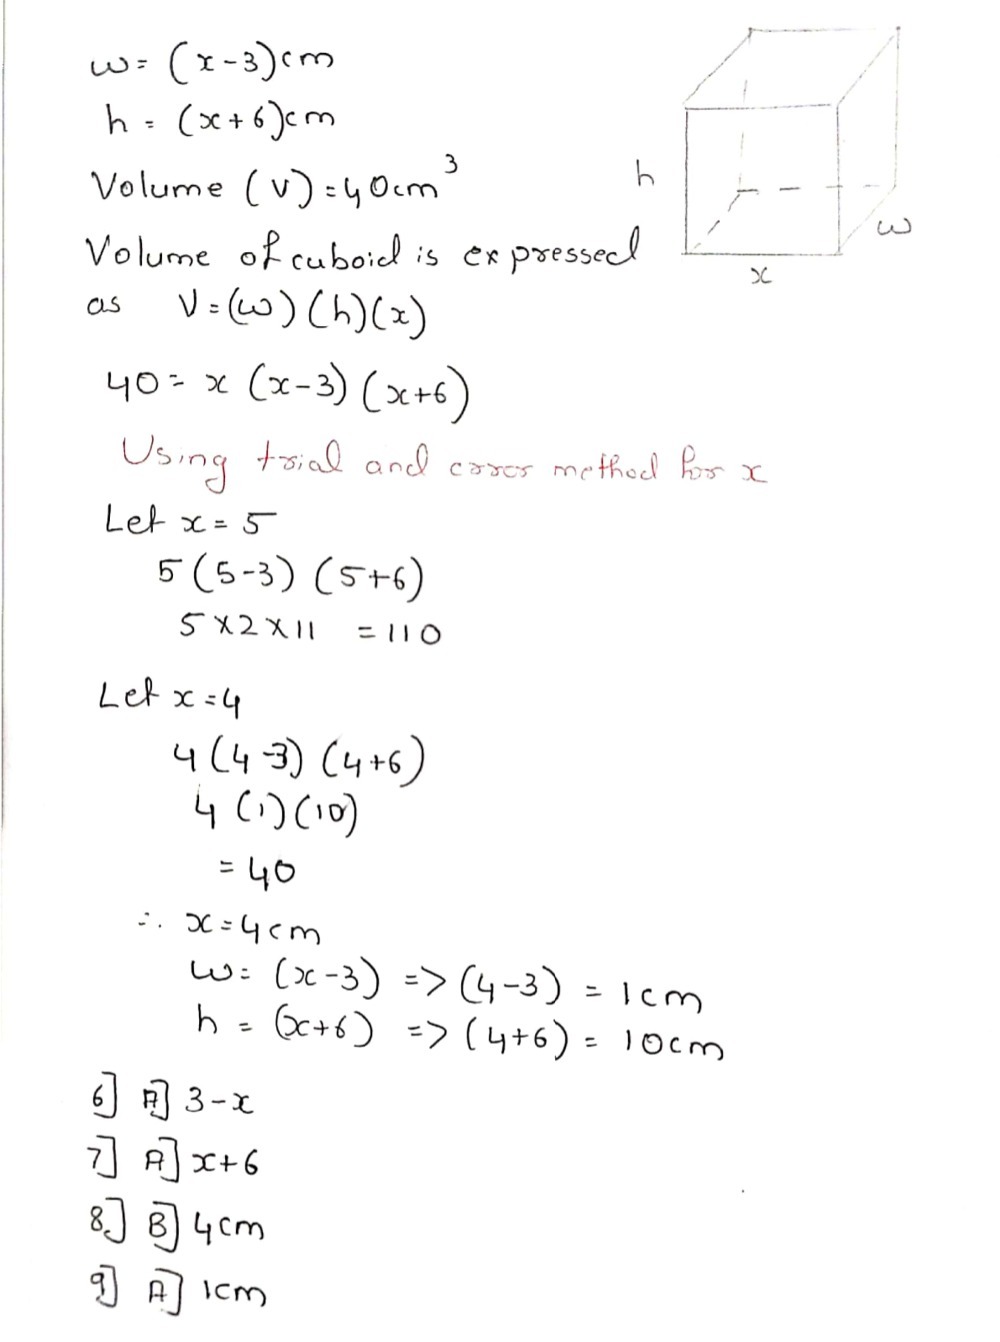 w = (x-3)cm
h = (x+6)cm
Volume (v) = 40cm³
Volume of cuboid is expressed
as V = (w) (h)(x)
h
w
x
40 = x (x-3) (x+6)
Using trial and error method for x
Let x = 5
5 (5-3) (5+6)
5 x 2 x 11 = 110
Let x = 4
4 (4-3) (4+6)
4 (1) (10)
= 40
∴ x = 4cm
w = (x-3) => (4-3) = 1cm
h = (x+6) => (4+6) = 10cm
6] A] 3-x
7] A] x+6
8] B] 4cm
9] A] 1cm